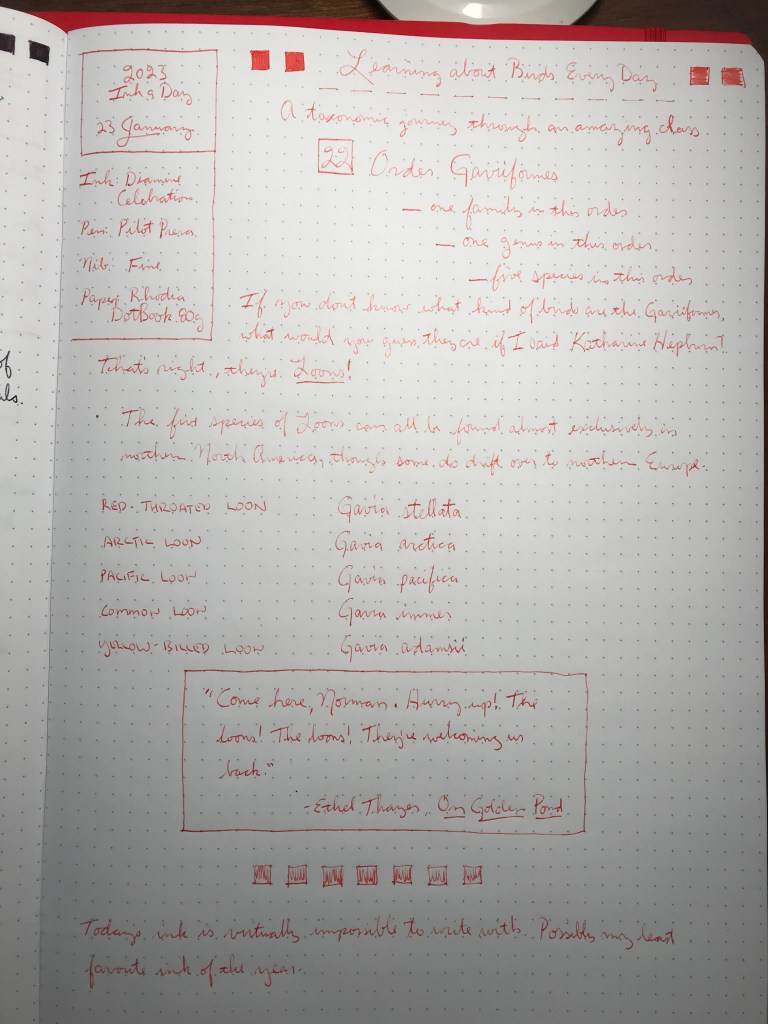 of
als.
2023
Ink a Day
23 January
Ink: Diamine
Celebration
Pen: Pilot Prera
Nib: Fine
Paper: Rhodia
DotBook 80g
Learning about Birds Every Day
A taxonomic journey through an amazing class
22 Order: Gaviiformes
— one family in this order
— one genus in this order
— five species in this order
If you don't know what kind of birds are the Gaviiformes,
what would you guess they are if I said Katharine Hepburn?
That's right, they're Loons!
• The five species of Loons can all be found almost exclusively in
northern North America, though some do drift over to northern Europe.
RED-THROATED LOON Gavia stellata
ARCTIC LOON Gavia arctica
PACIFIC LOON Gavia pacifica
COMMON LOON Gavia immer
YELLOW-BILLED LOON Gavia adamsii
"Come here, Norman. Hurry up! The
loons! The loons! They're welcoming us
back."
- Ethel Thayer, On Golden Pond
Today's ink is virtually impossible to write with. Possibly my least
favorite ink of the year.